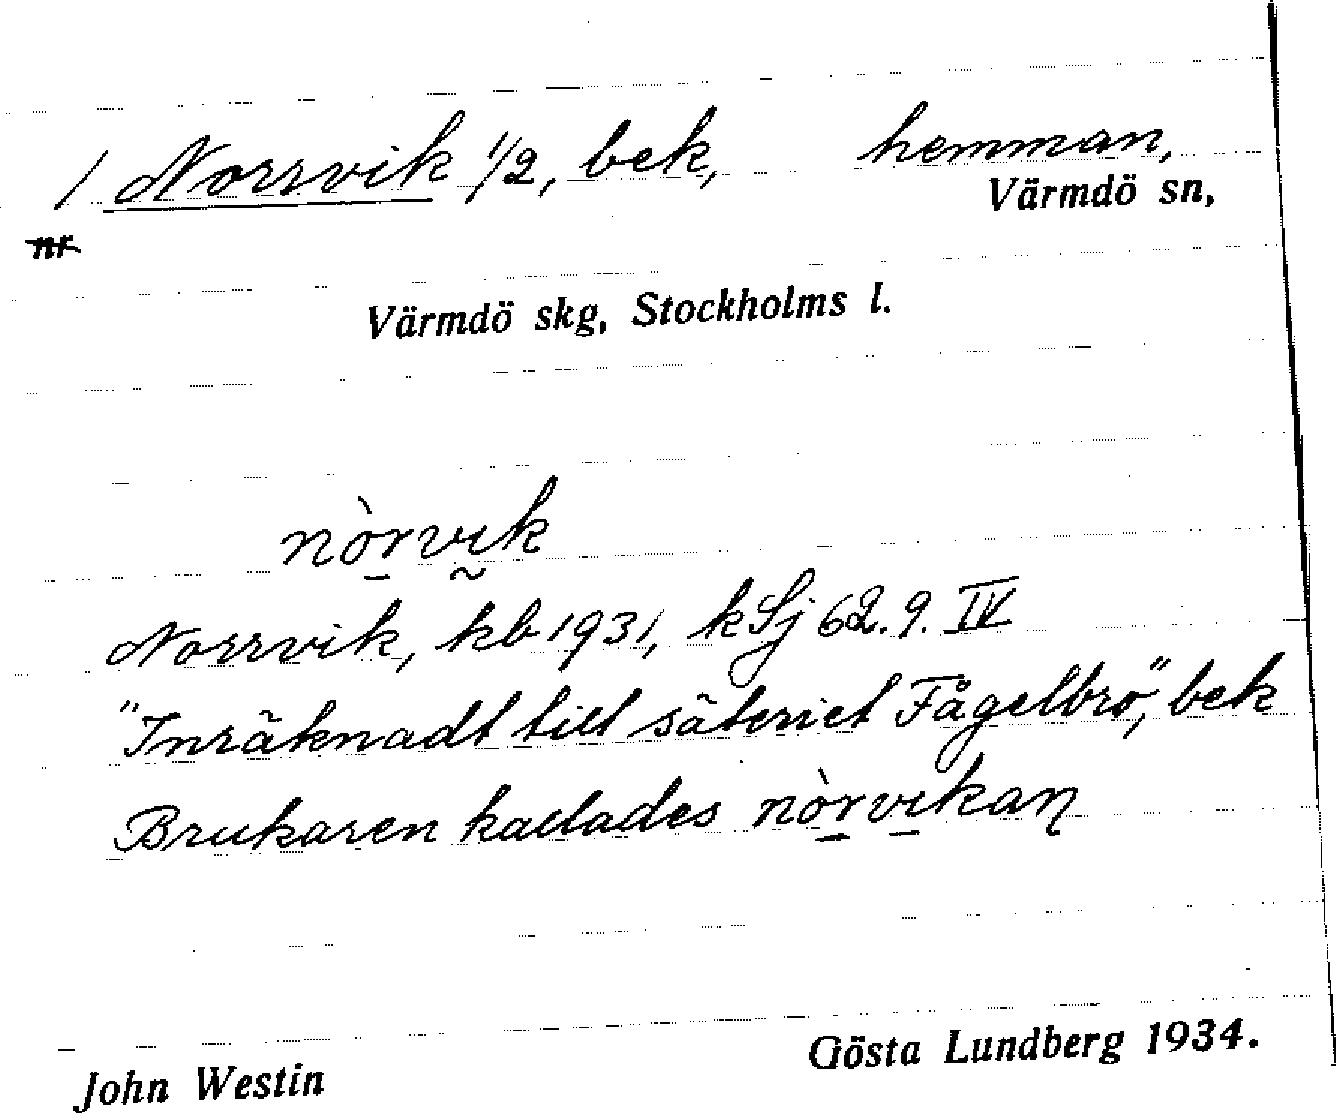 / Norrvik 1/2, bek, hemman,
Värmdö sn,
nr
Värmdö skg, Stockholms l.
nòrvik
Norrvik, kb 1931, kSj 62.9. IV
"Inräknadt till säteriet Fågelbro", bek
Brukaren kallades nòrvikan
John Westin
Gösta Lundberg 1934.